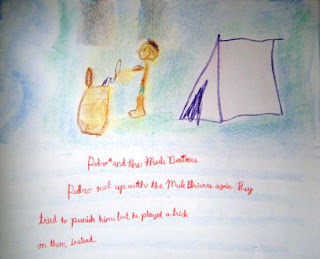 Pedro and the Mule Drivers
Pedro met up with the Mule Drivers again. They
tried to punish him, but he played a trick
on them instead.